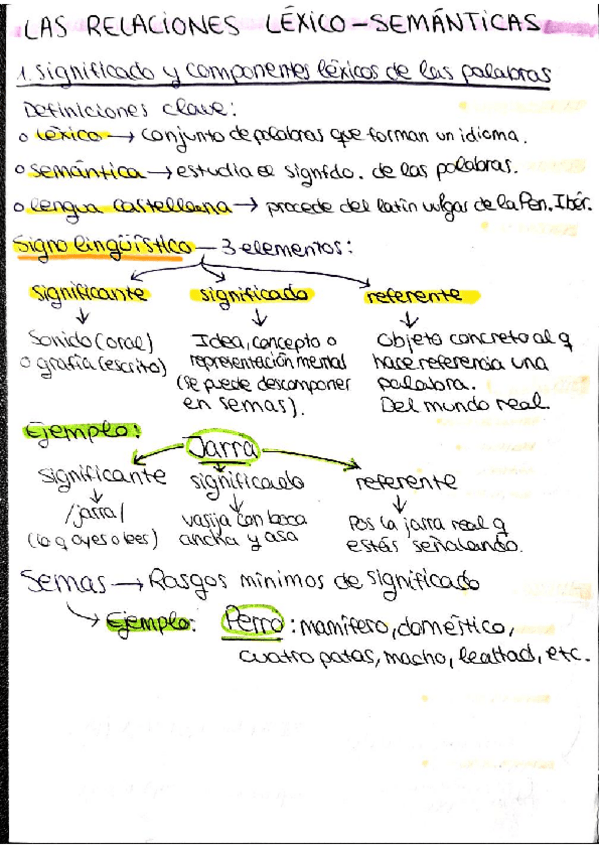 LAS RELACIONES LÉXICO-SEMÁNTICAS
1. Significado y componentes léxicos de las palabras
Definiciones clave:
o Léxico → conjunto de palabras que forman un idioma.
o Semántica → estudia el signfdo. de las palabras.
o Lengua castellana → procede del latín vulgar de la Pen. Ibér.
Signo lingüístico - 3 elementos:
significante significado referente
Sonido (oral) Idea, concepto o Objeto concreto al q
o grafía (escrito) representación mental hace referencia una
(se puede descomponer palabra.
en semas). Del mundo real.
Ejemplo: Jarra
significante significado referente
/jarra/ vasija con boca Pos la jarra real q
(lo q oyes o lees) ancha y asa estás señalando.
Semas → Rasgos mínimos de significado
→ Ejemplo: Perro: mamífero, doméstico,
cuatro patas, macho, lealtad, etc.